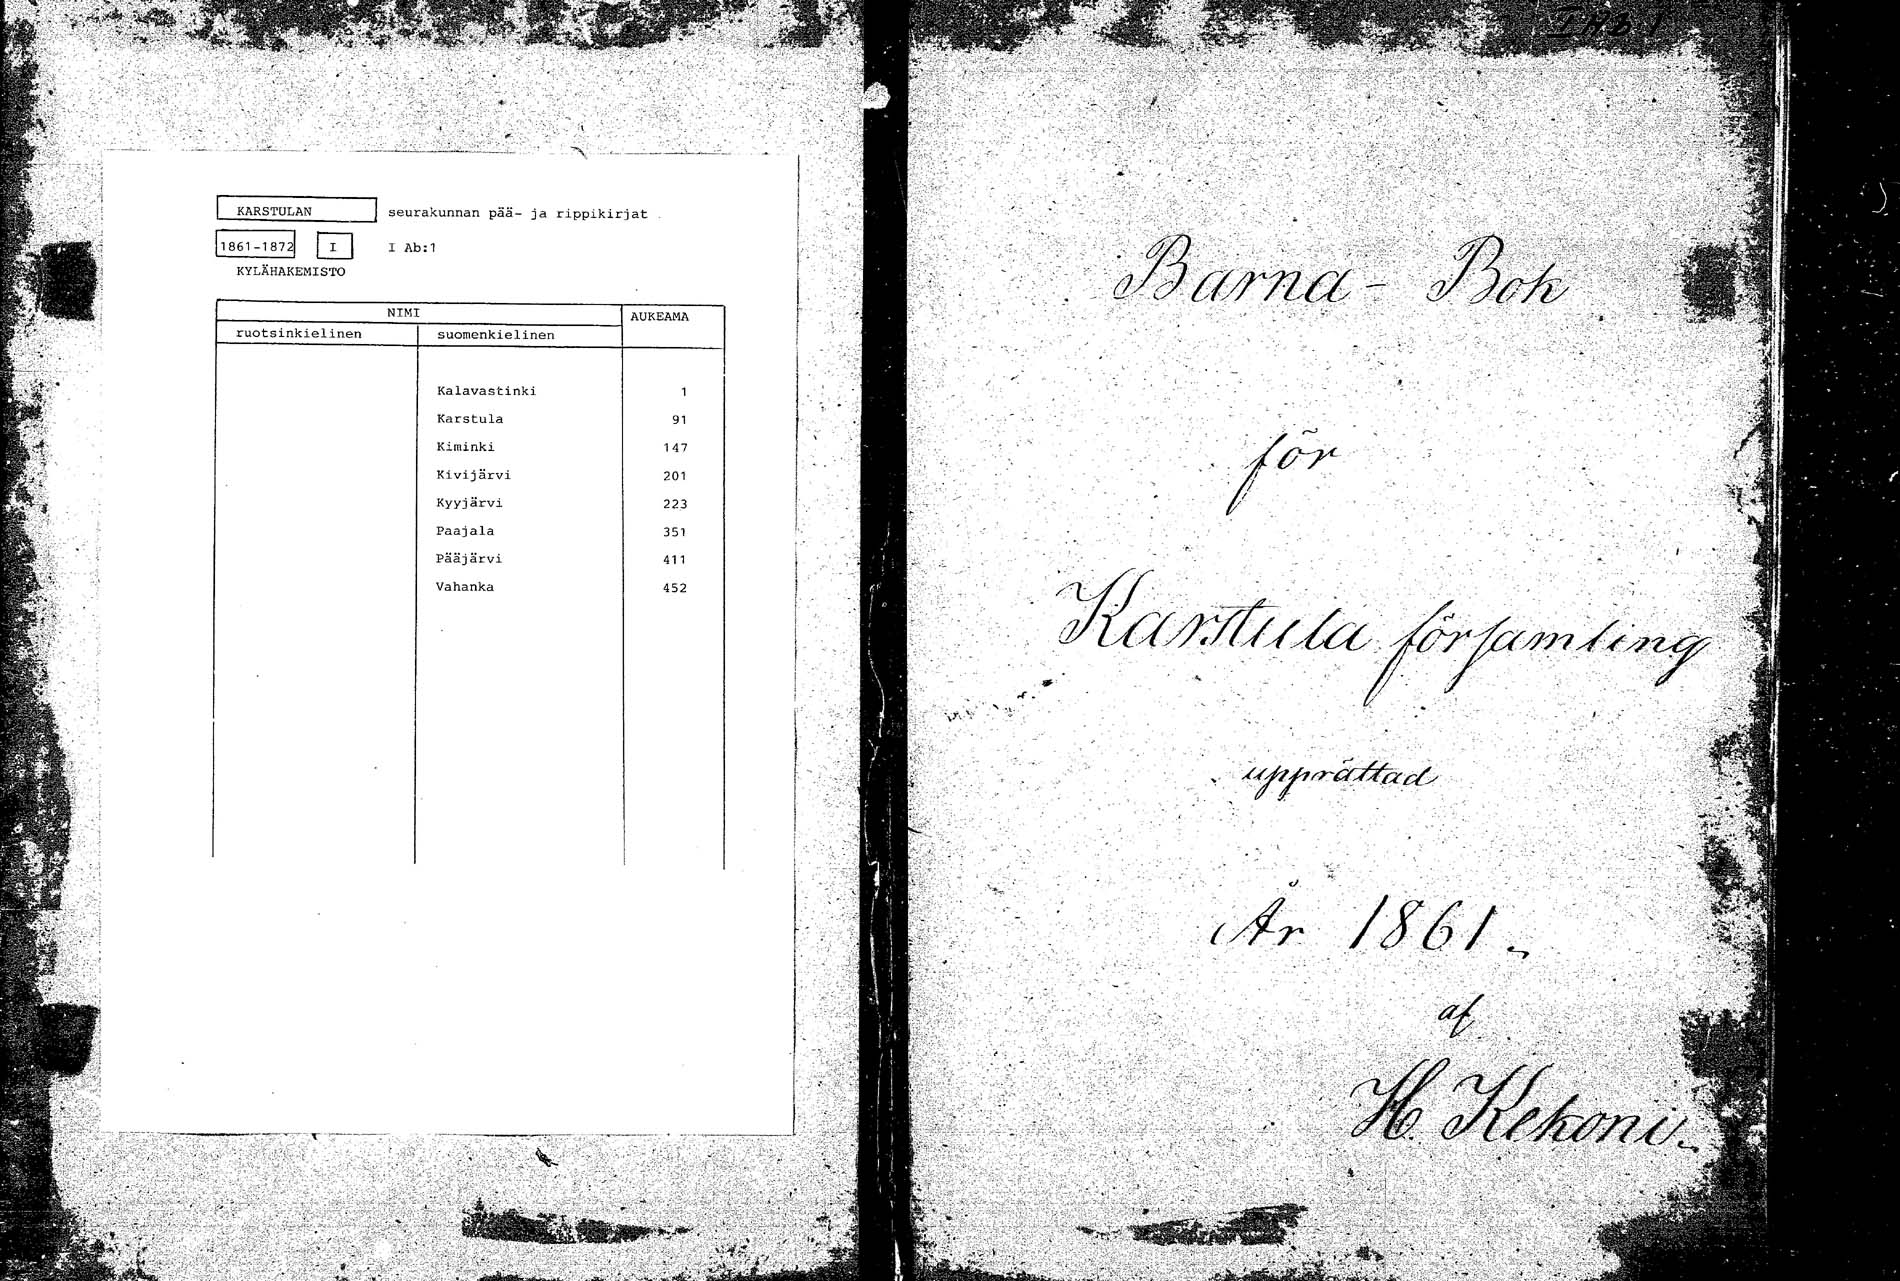 KARSTULAN seurakunnan pää- ja rippikirjat
1861-1872 I I Ab:1
KYLÄHAKEMISTO
NIMI AUKEAMA
ruotsinkielinen suomenkielinen
Kalavastinki 1
Karstula 91
Kiminki 147
Kivijärvi 201
Kyyjärvi 223
Paajala 351
Pääjärvi 411
Vahanka 452
I Ab 1
Barna- Bok
för
Karstula församling
upprättad
År 1861.
af
H. Kekoni.